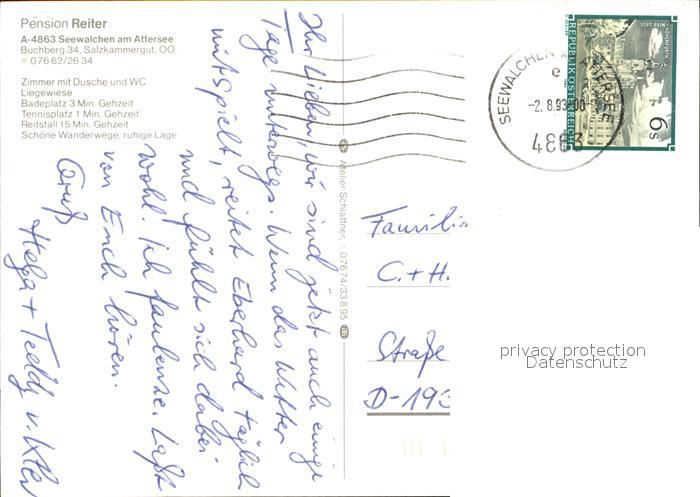 Pension Reiter
A-4863 Seewalchen am Attersee
Buchberg 34, Salzkammergut, OÖ.
☏ 0 76 62/26 34
Zimmer mit Dusche und WC
Liegewiese
Badeplatz 3 Min. Gehzeit
Tennisplatz 1 Min. Gehzeit
Reitstall 15 Min. Gehzeit
Schöne Wanderwege, ruhige Lage
Ihr Lieben, wir sind jetzt auch einige
Tage unterwegs. Wenn das Wetter
mitspielt, reitet Eberhard täglich
und fühlt sich dabei
wohl. Ich faulenze. Laßt
von Euch hören.
Gruß
Helga + Teddy v.
Atelier Schlattner, ☏ 07674/33895
SEEWALCHEN ATTERSEE
-2.8.93
4863
REPUBLIK ÖSTERREICH
6 S
Familie
C. + H.
Straße
D-193
privacy protection
Datenschutz